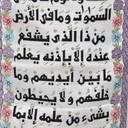 السموت وما في الأرض
من ذا الذي يشفع
عنده إلا بإذنه يعلم
ما بين أيديهم وما
خلفهم ولا يحيطون
بشيء من علمه إلا بما